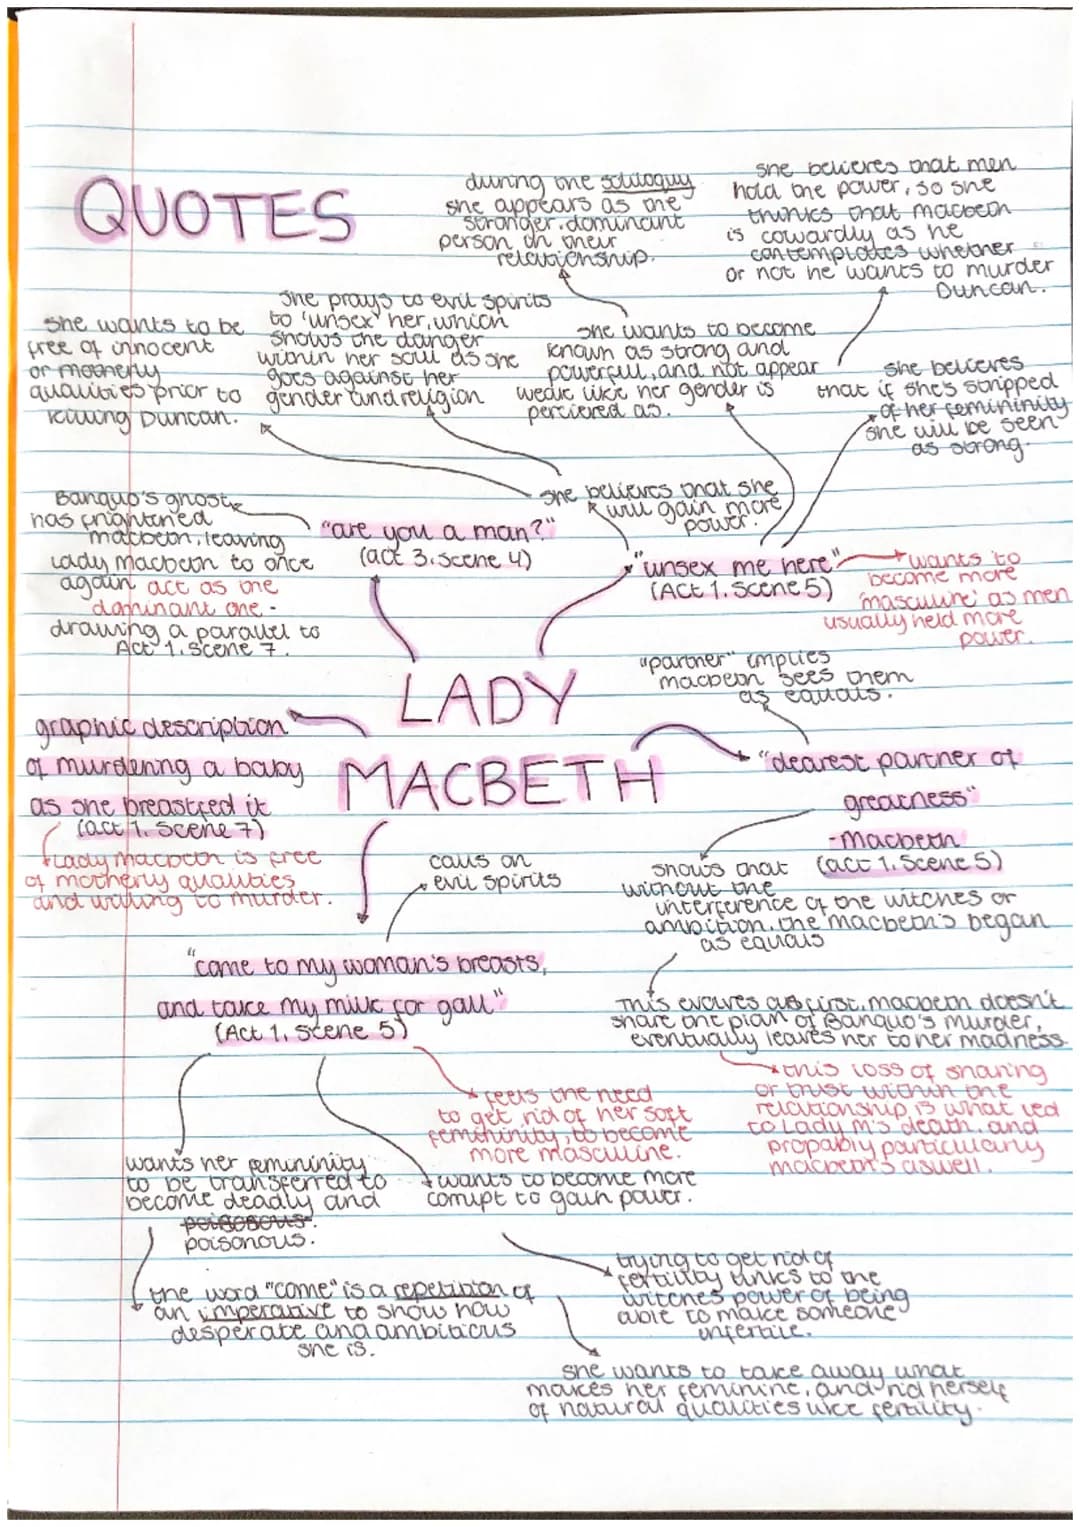 QUOTES
during the soliloquy
she appears as the
stronger, dominant
person in their
relationship.
she believes that men
hold the power, so she
thinks that macbeth
is cowardly as he
contemplates whether
or not he wants to murder
Duncan.
she wants to be
free of innocent
or motherly
qualities prior to
killing Duncan.
she prays to evil spirits
to 'unsex' her, which
shows the danger
within her soul as she
goes against her
gender and religion
she wants to become
known as strong and
powerful, and not appear
weak like her gender is
percieved as.
she believes
that if she's stripped
of her femininity
she will be seen
as strong.
she believes that she
will gain more
power.
Banquo's ghost
has frightened
macbeth, leaving
Lady macbeth to once
again act as the
dominant one -
drawing a parallel to
Act 1, Scene 7.
"are you a man?"
(act 3, scene 4)
"unsex me here"
(ACT 1, Scene 5)
wants to
become more
'masculine' as men
usually held more
power.
LADY
MACBETH
"partner" implies
macbeth sees them
as equals.
graphic description
of murdering a baby
as she breastfed it
(act 1, Scene 7)
Lady macbeth is free
of motherly qualities
and willing to murder.
"dearest partner of
greatness"
-Macbeth
(act 1, Scene 5)
shows that
without the
interference of the witches or
ambition, the macbeth's began
as equals
This evolves as first, macbeth doesn't
share the plan of Banquo's murder,
eventually leaves her to her madness
this loss of sharing
or trust within the
relationship is what led
to Lady M's death, and
propably particularly
macbeth's aswell.
calls on
evil spirits
"come to my woman's breasts,
and take my milk for gall"
(Act 1, Scene 5)
feels the need
to get rid of her soft
femininity, to become
more masculine.
wants her femininity
to be transferred to
become deadly and
poisonous.
wants to become more
corrupt to gain power.
the word "come" is a repetition of
an imperative to show how
desperate and ambitious
she is.
trying to get rid of
fertility links to the
witches power of being
able to make someone
infertile.
she wants to take away what
makes her feminine, and rid herself
of natural qualities like fertility.